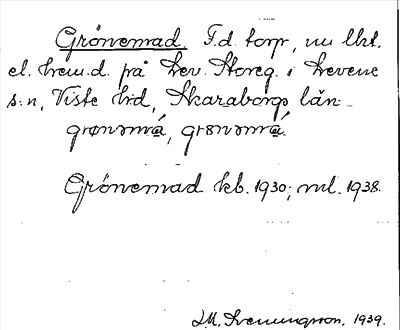 Grönemad. F.d. torp, nu lht.
el. hem.d. på Lev. Storeg. i Levene
s:n, Viste hd, Skaraborgs län.
grønəmá, grønəmá.
Grönemad kb. 1930; ml. 1938.
1939.